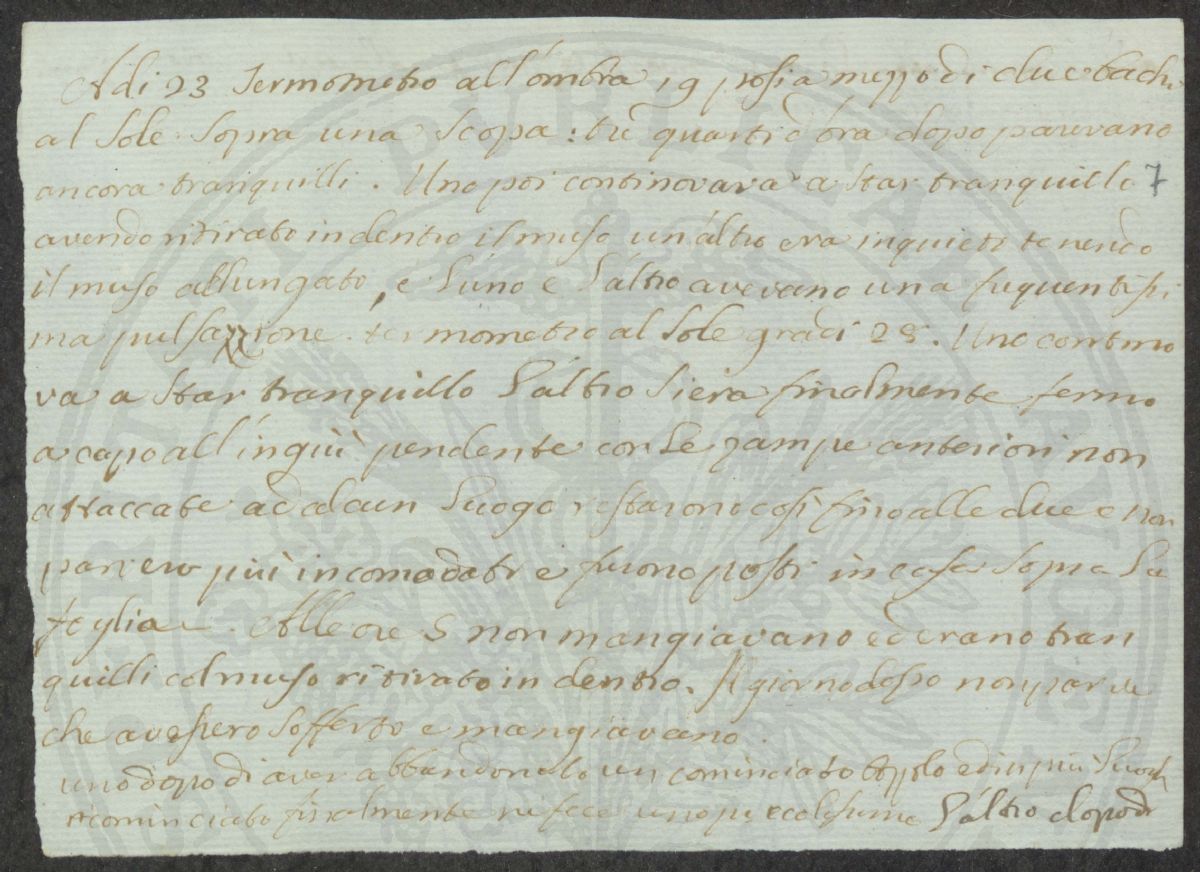 Adi 23 Termometro all'ombra 19 posi a mezzo dì due bachi
al Sole sopra una scopa: tre quarti d'ora dopo parevano
ancora tranquilli. Uno poi continovava a star tranquillo 7
avendo ritirato indentro il muso un'altro era inquieto tenendo
il muso allungato, e l'uno e l'altro avevano una frequentissi
ma pulsazzione. termometro al Sole gradi 28. Uno contino
va a star tranquillo l'altro si era finalmente fermo
a capo all'ingiù pendente con le zampe anteriori non
attaccate ad alcun luogo restarono così fino alle due e non
parvero più incomodati e furono posti in casa sopra la
foglia. Alle ore 5 non mangiavano ed erano tran
quilli col muso ritirato in dentro. Il giorno dopo non parve
che avessero sofferto e mangiavano.
uno dopo di aver abbandonato un cominciato bozzolo ed in più luoghi
ricominciato finalmente ne fece uno piccolissimo l'altro dopo di